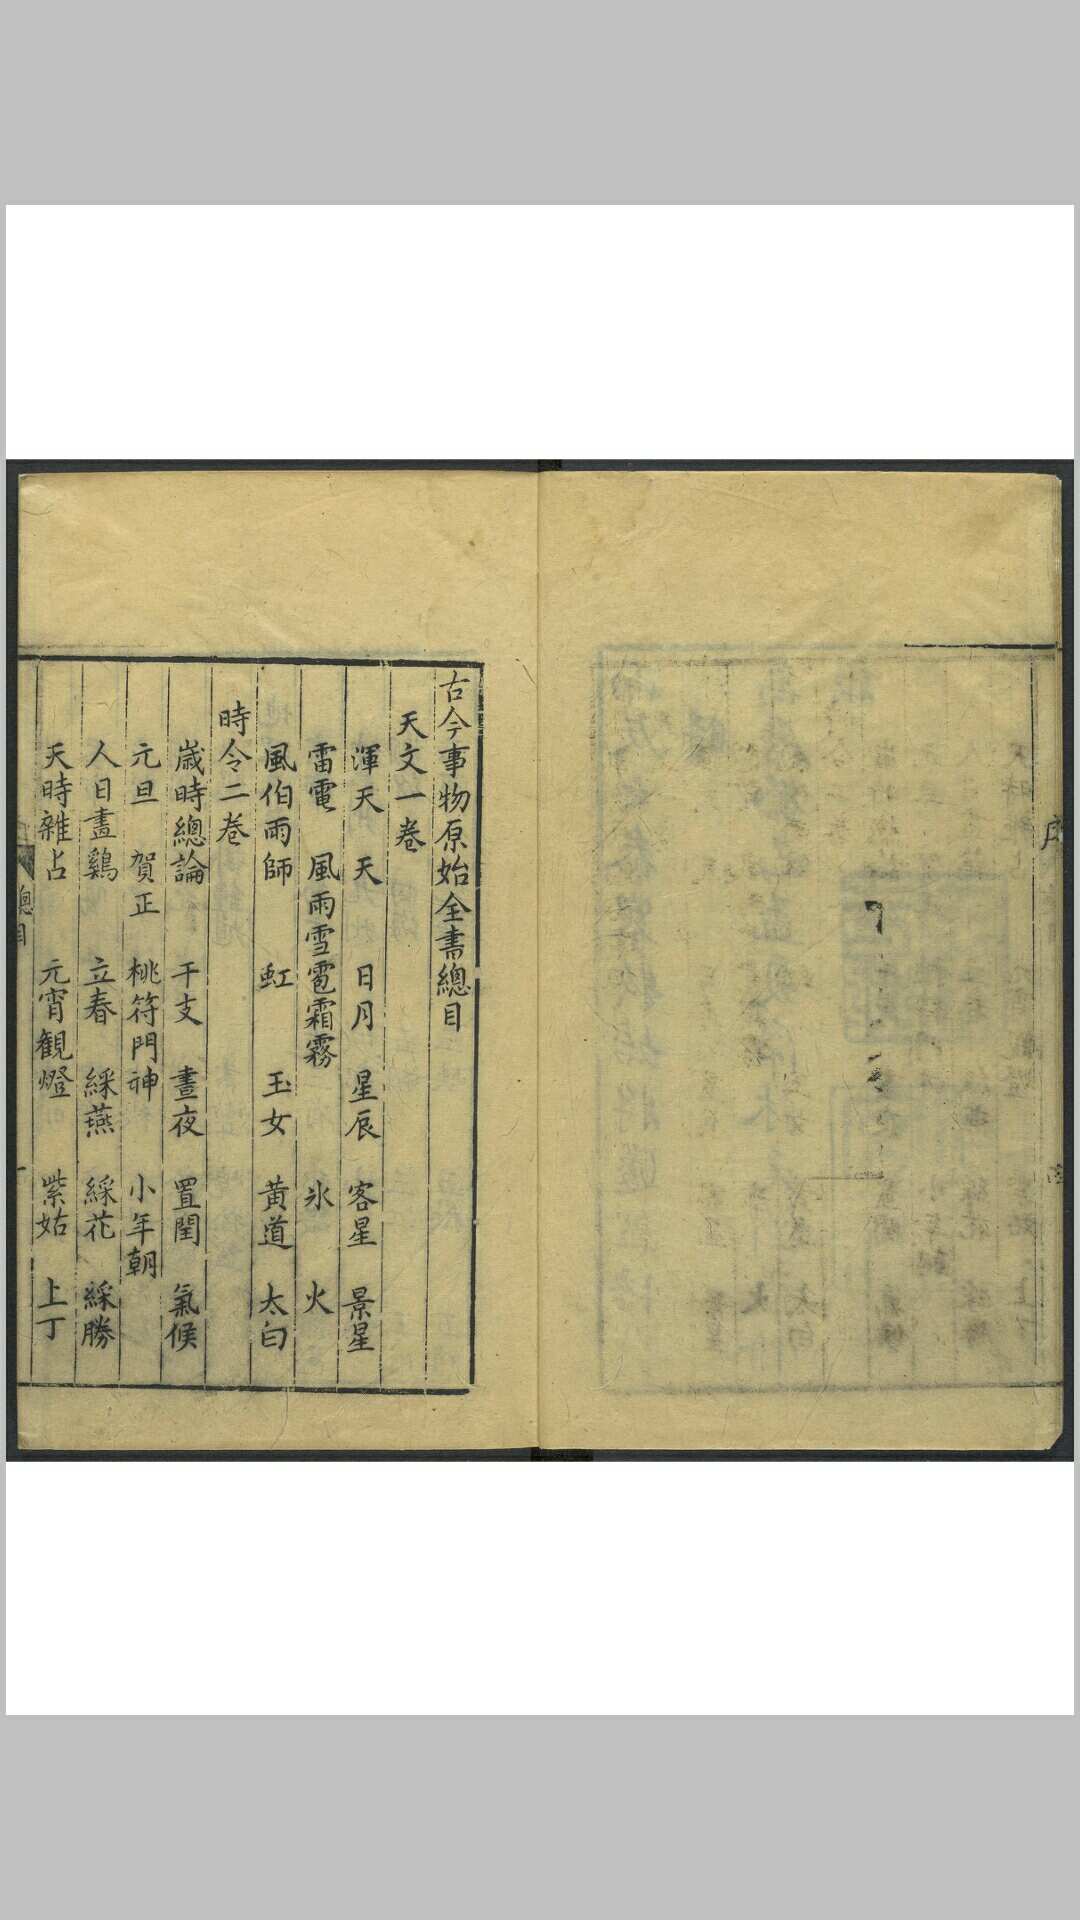 古今事物原始全書總目
天文一卷
渾天　天　日月　星辰　客星　景星
雷電　風雨雪雹霜霧　氷　火
風伯雨師　虹　玉女　黄道　太白
時令二卷
歲時總論　干支　晝夜　置閏　氣候
元旦　賀正　桃符門神　小年朝
人日畫鷄　立春　綵燕　綵花　綵勝
天時雜占　元宵觀燈　紫姑　上丁
總目